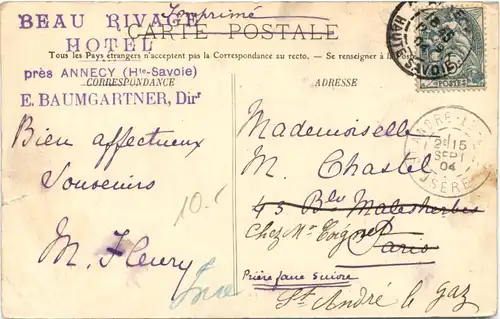 Imprimé
BEAU RIVAGE
HOTEL
près ANNECY (Hte-Savoie)
E. BAUMGARTNER, Dir
CARTE POSTALE
Tous les Pays étrangers n'acceptent pas la Correspondance au recto. — Se renseigner à la
CORRESPONDANCE
ADRESSE
Bien affectueux
Souvenirs
M. Fleury
10.-
Mademoiselle
M. Chastel
45 Blv Malesherbes
Chez Mr
Paris
Prière faire suivre
St André le gaz
HAUTE
POSTES
ISÈRE
2E 15
SEPT
04